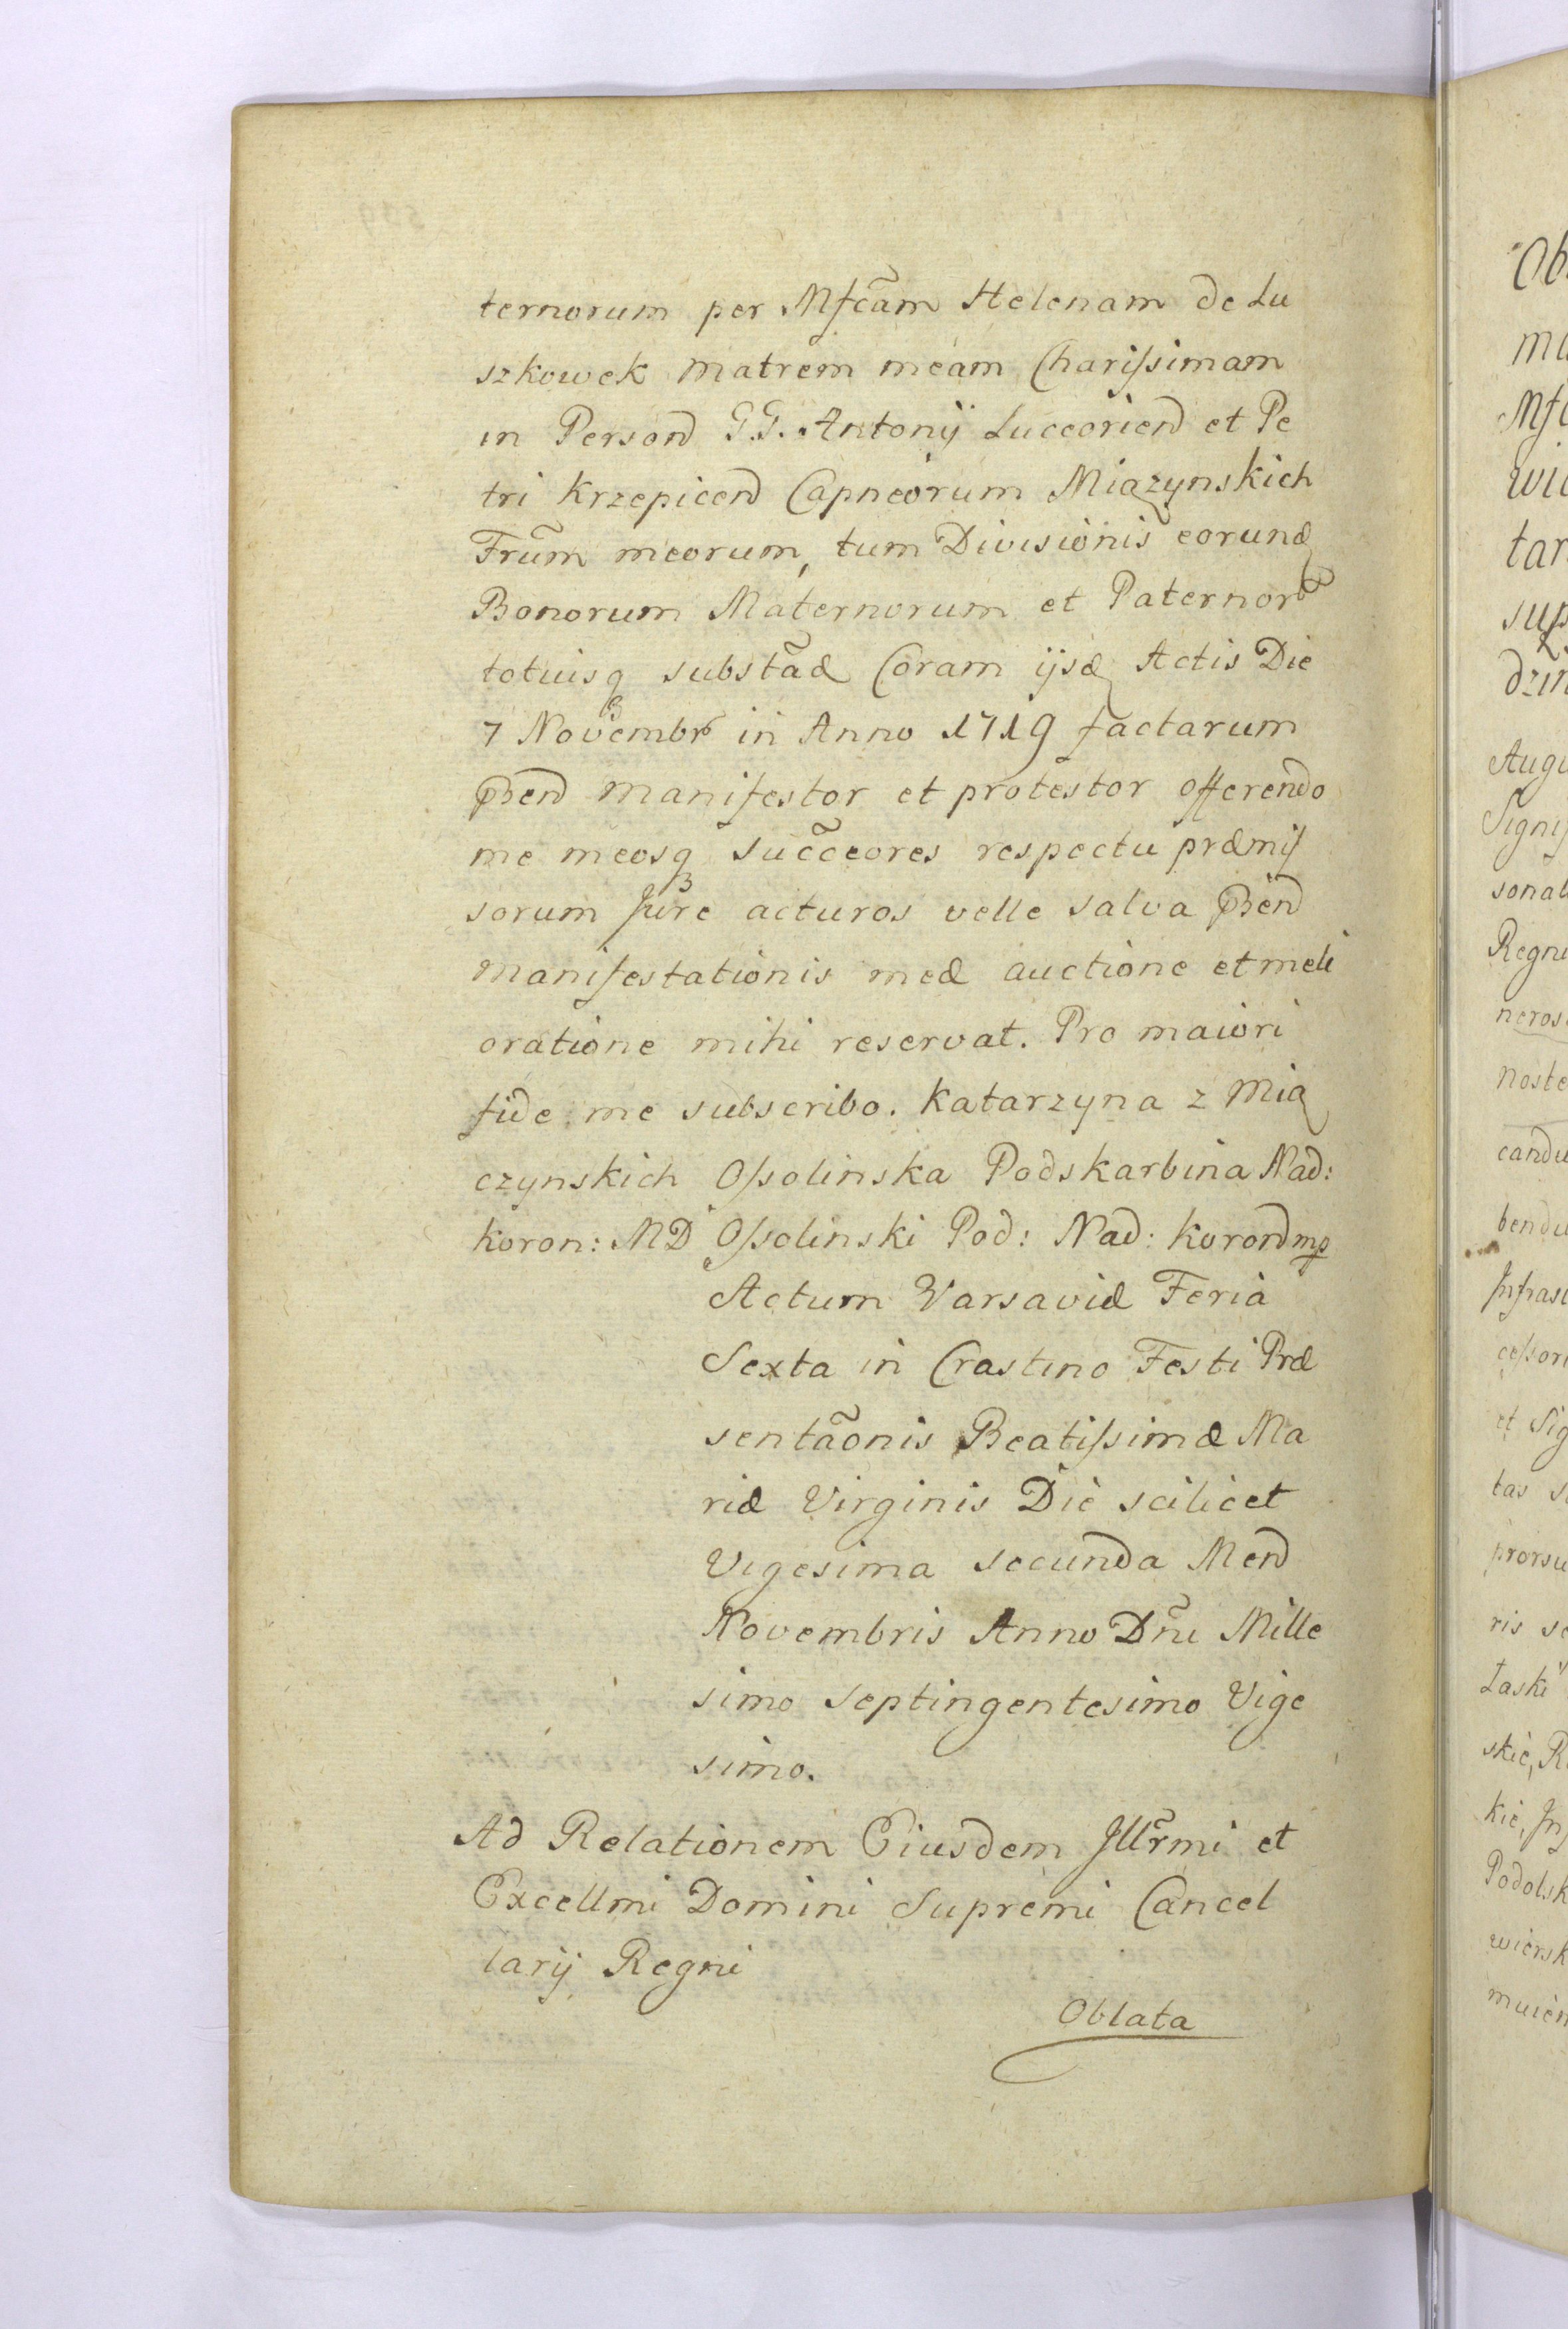 ternorum per Mfcãm Helenam de Lu
szkowek Matrem meam Charissimam
in Person̄ G.G. Antonij Luceorien̄ et Pe
tri Krzepicen̄ Capneorum Miązynskich
Frum̃ meorum, tum Divisionis eorund
Bonorum Maternorum et Paternor
totiusq substãæ Coram ijsd Actis Die
7 Novembr in Anno 1719 factarum
Pñen̄ manifestor et protestor offerendo
me meosq succ̃eores respectu præmis
sorum Jure acturos velle salva Pñen̄
manifestationis meæ auctione et meli
oratione mihi reservat. Pro maiori
fide me subscribo. Katarzyna z Mią
czynskich Ossolinska Podskarbina Nad:
koron: MD Ossolinski Pod: Nad: Koron̄ mp
Actum Varsaviæ Feria
Sexta in Crastino Festi Præ
sentãonis Beatissimæ Ma
riæ Virginis Die scilicet
Vigesima secunda Men̄
Novembris Anno Dñi Mille
simo Septingentesimo Vige
simo.
Ad Relationem Eiusdem Jllr̃mi et
Excellmi Domini Supremi Cancel
larij Regni
Oblata